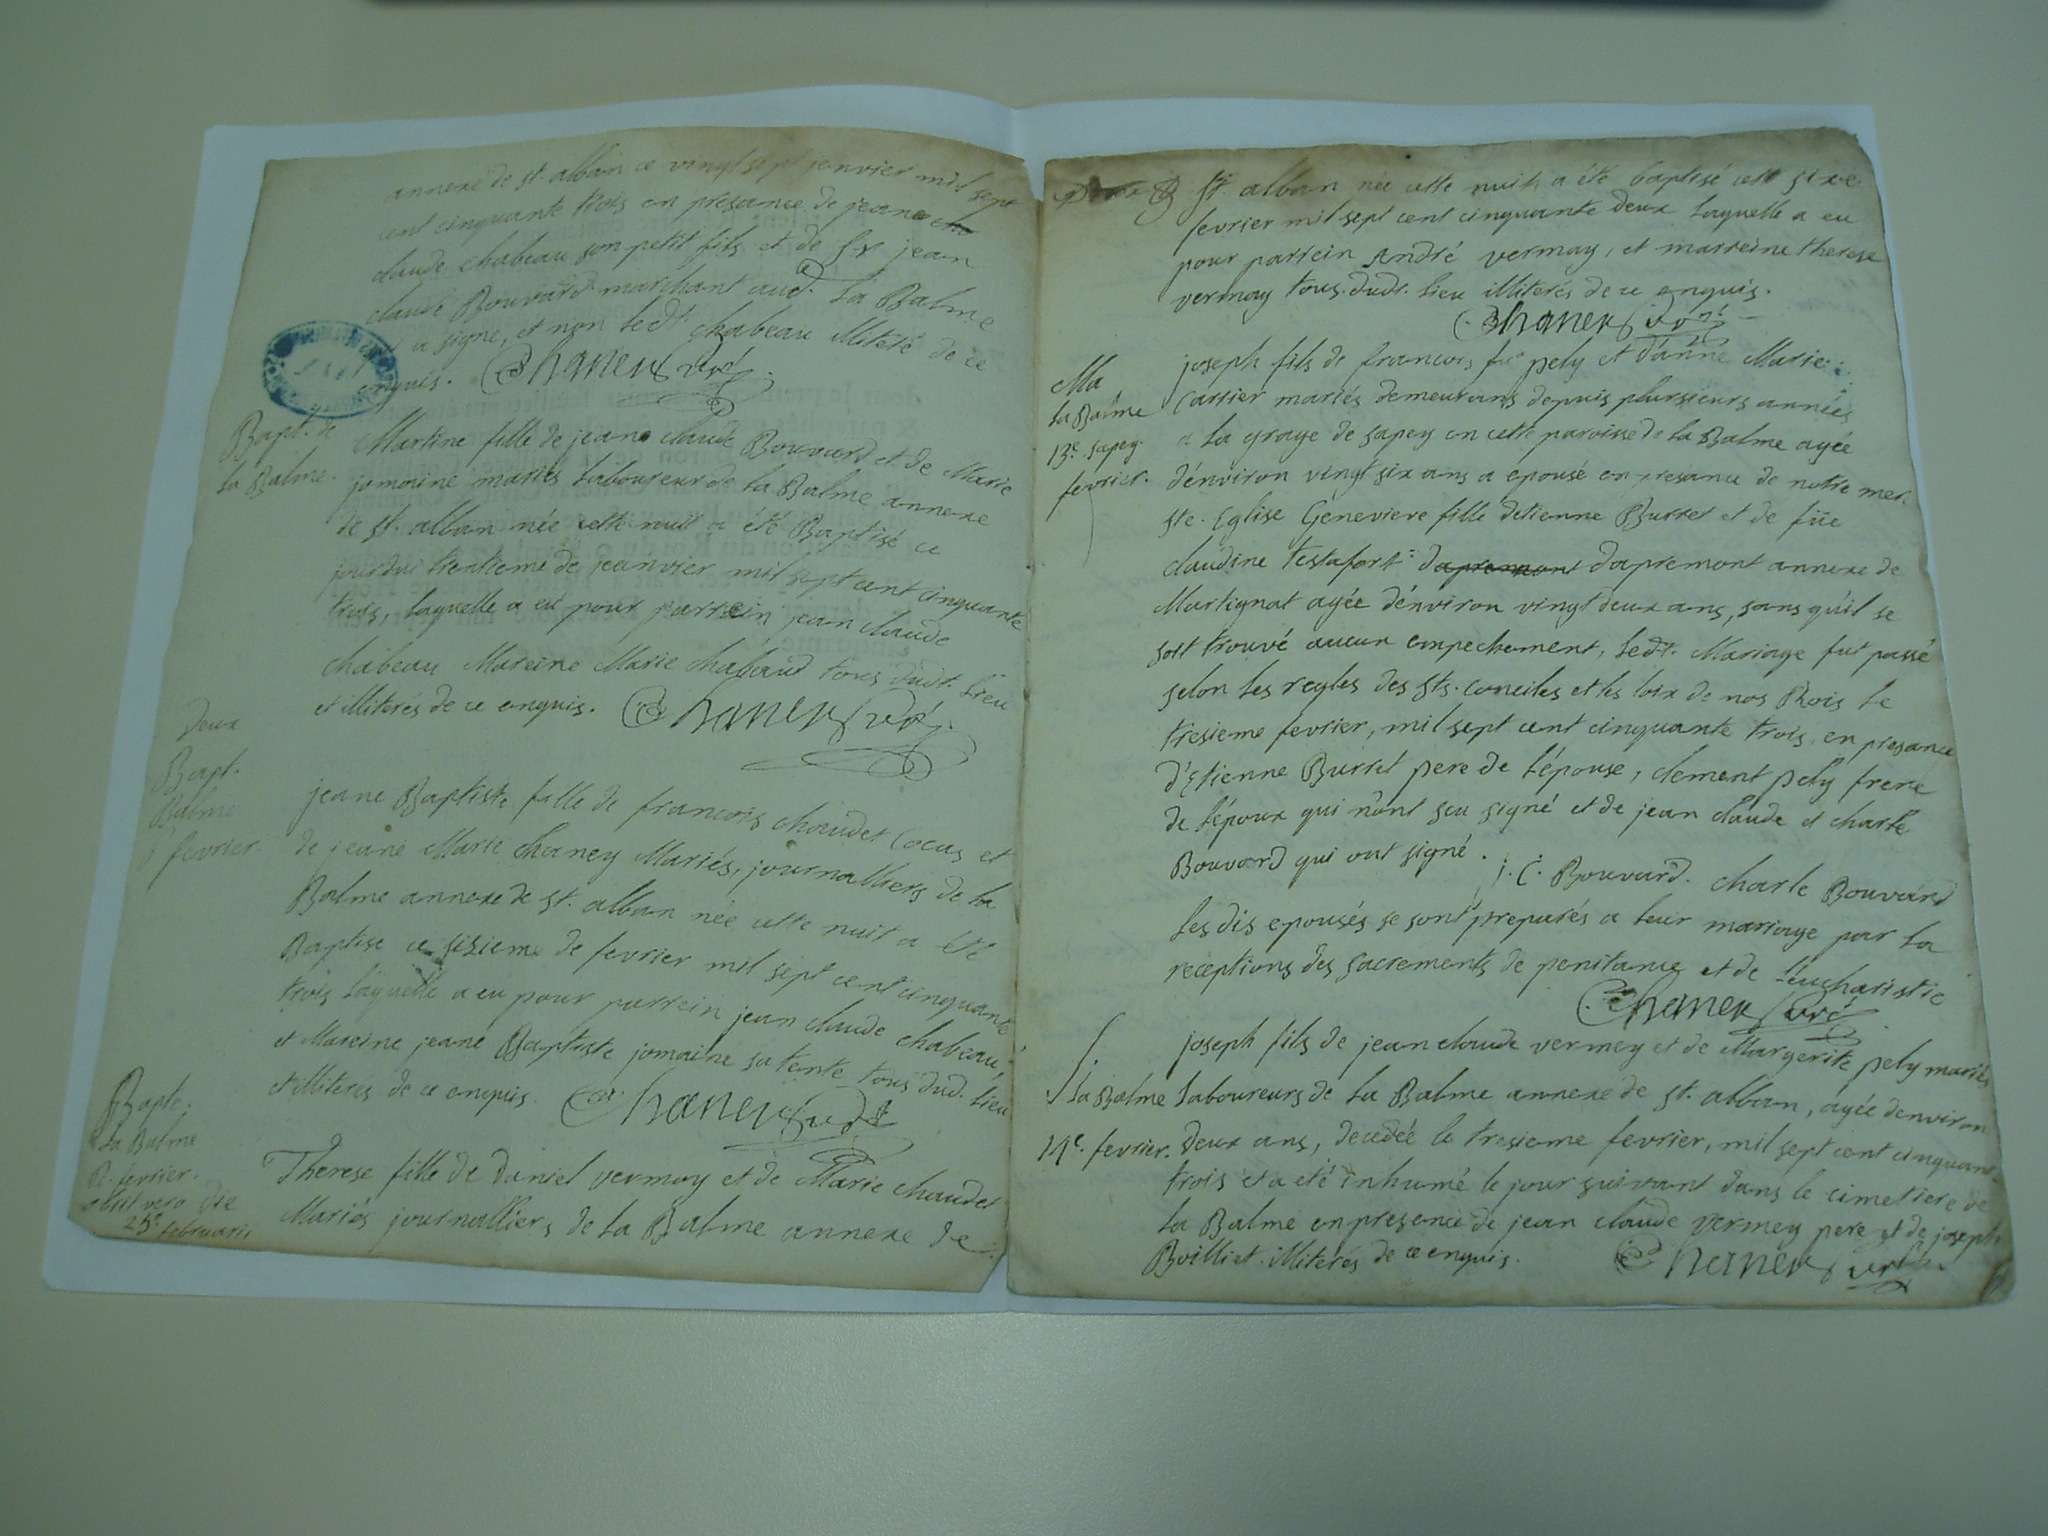 annexe de st. alban ce vingt sept janvier mil sept
cent cinquante trois en presance de jean
claude chabeau son petit fils et de sr jean
claude Bouvard marchant aud. La Balme
a signe, et non led. chabeau illiteré de ce
enquis. Chanen curé
Bapt. de
la Balme.
Martine fille de jean claude Bouvard et de Marie
jomaine mariés laboureur de la Balme annexe
de st. alban née cette nuit a été Baptisé ce
jourdui trentieme de jeanvier mil sept cent cinquante
trois, laquelle a eu pour parrein jean claude
chabeau Mareine Marie chabaud tous dudt. lieu
et illiterés de ce enquis. Chanen curé
Deux
Bapt.
Balme
fevrier
jeane Baptiste fille de francois chaudet Cocas et
de jeane Marie chaney Mariés, journalliers de la
Balme annexe de st. alban née cette nuit a été
Baptise ce sixieme de fevrier mil sept cent cinquante
trois laquelle a eu pour parrein jean claude chabeau,
et Mareine jeane Baptiste jomaine sa tente tous dud. lieu
et illiterés de ce enquis. Chanen curé
Bapte.
la Balme
fevrier.
obiit vero die
25e. februarii
Therese fille de Daniel vermay et de Marie chaudet
Mariés journalliers de la Balme annexe de
st. alban née cette nuit a été baptisé cett sixe
fevrier mil sept cent cinquante deux laquelle a eu
pour parrein André vermay, et marreine therese
vermay tous dudt. lieu illiterés de ce enquis.
Chanen curé
Ma
la Balme
13e. sapey
fevrier.
joseph fils de francois pely et d'anne Marie
Carrier mariés demeurans depuis plursieurs années
a la graye de sapey en cette paroisse de la Balme agée
d'environ vingt six ans a epousé en presance de notre mere
ste. Eglise Genevieve fille detienne Burret et de füe
claudine Testafort dapremont dapremont annexe de
Martignat agée d'environ vingt deux ans, sans qu'il se
soit trouvé aucun empechement, ledt. Mariage fut passé
selon les regles des sts. conciles et les loix de nos Rois le
tresieme fevrier, mil sept cent cinquante trois, en presance
d'Etienne Burret pere de l'épouse, clement pely frere
de l'époux qui n'ont seu signé et de jean claude et charle
Bouvard qui ont signé.
j. C. Bouvard. charle Bouvard
les dis epousés se sont preparés a leur mariage par la
receptions des sacrements de penitance et de l'eucharistie
Chanen curé
S.
la Balme
14e. fevrier.
joseph fils de jean claude vermey et de Margerite pely mariés
laboureurs de la Balme annexe de st. alban, agée denviron
Deux ans, decedée le tresieme fevrier, mil sept cent cinquante
trois et a été inhumé le jour suivant dans le cimetiere de
la Balme en presence de jean claude vermey pere et de joseph
Boilliet illiterés de ce enquis. Chanen curé